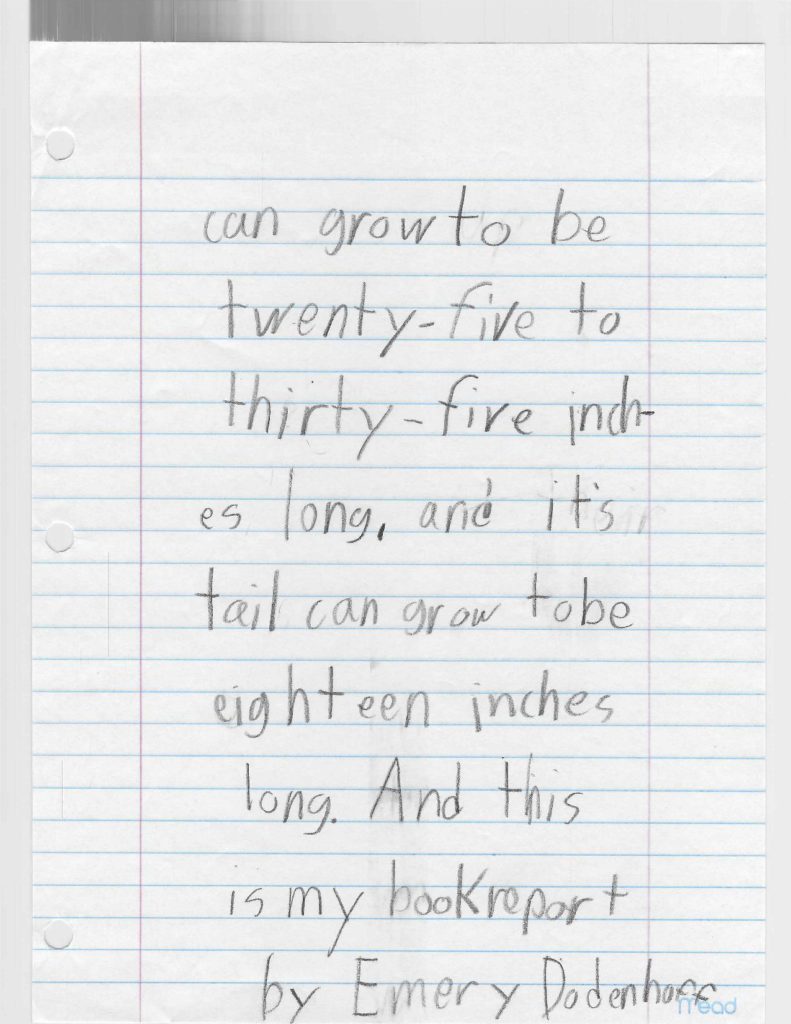 can grow to be
twenty-five to
thirty-five inch-
es long, and it's
tail can grow tobe
eighteen inches
long. And this
is my bookreport
by Emery Dodenhoff
mead